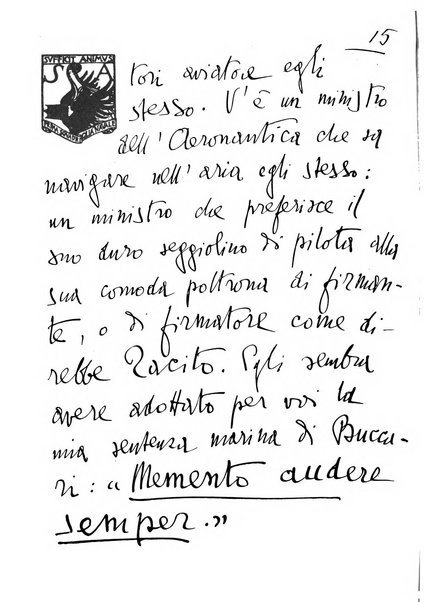 15
SUFFICIT ANIMUS
S A
tori aviatore egli
stesso. V'è un ministro
dell'Aeronautica che sa
navigare nell'aria egli stesso:
un ministro che preferisce il
suo duro seggiolino di pilota alla
sua comoda poltrona di firman-
te, o di firmatore come di-
rebbe Tacito. Egli sembra
avere adottato per voi la
mia sentenza marina di Bucca-
ri: « Memento audere
semper.»